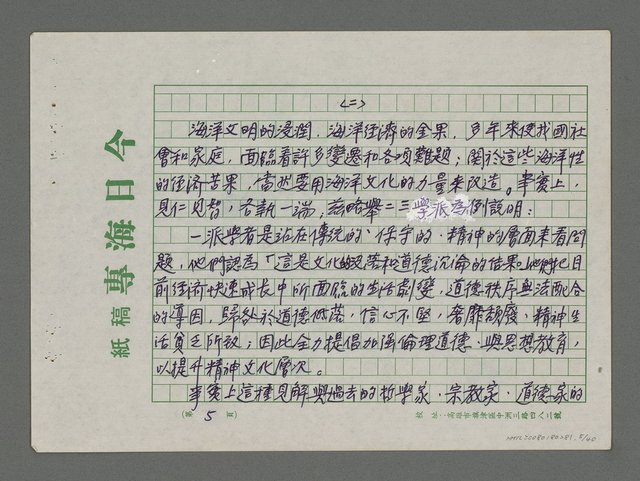 今日海專
稿紙
<二>
海洋文明的浸潤，海洋經濟的金果，多年來使我國社
會和家庭，面臨着許多變遷和各項難題；關於這些海洋性
的經濟苦果，當然要用海洋文化的力量來改造。事實上，
見仁見智，各執一端，茲略舉二三學派為例說明：
一派學者是站在傳統的、保守的、精神的層面來看問
題，他們認為「這是文化的沒落和道德沉淪的結果。他們把目
前經濟快速成長中所面臨的生活劇變，道德秩序無法配合
的導因，歸咎於道德低落，信心不堅，奢靡頹廢、精神生
活貧乏所致；因此全力提倡加強倫理道德、與思想教育，
以提升精神文化層次。
事實上這種見解與過去的哲學家、宗教家、道德家的
（第 5 頁）
校址：高雄市旗津區中洲三路四八二號